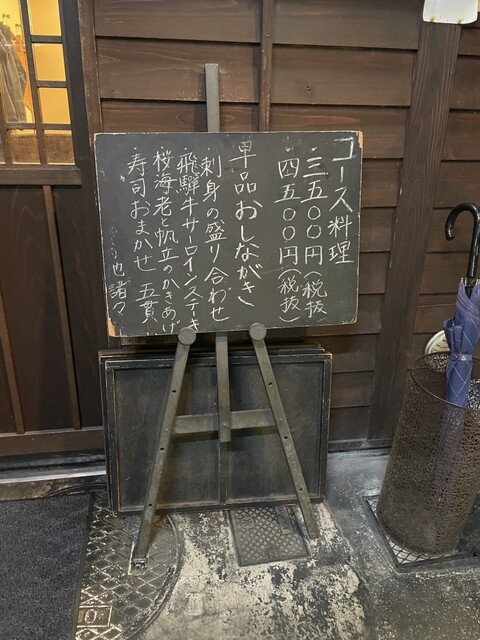 コース料理
・三五〇〇円(税抜)
・四五〇〇円(税抜)
単品おしながき
・刺身の盛り合わせ
・飛騨牛サーロインステーキ
・桜海老と帆立のかきあげ
・寿司おまかせ 五貫
他諸々